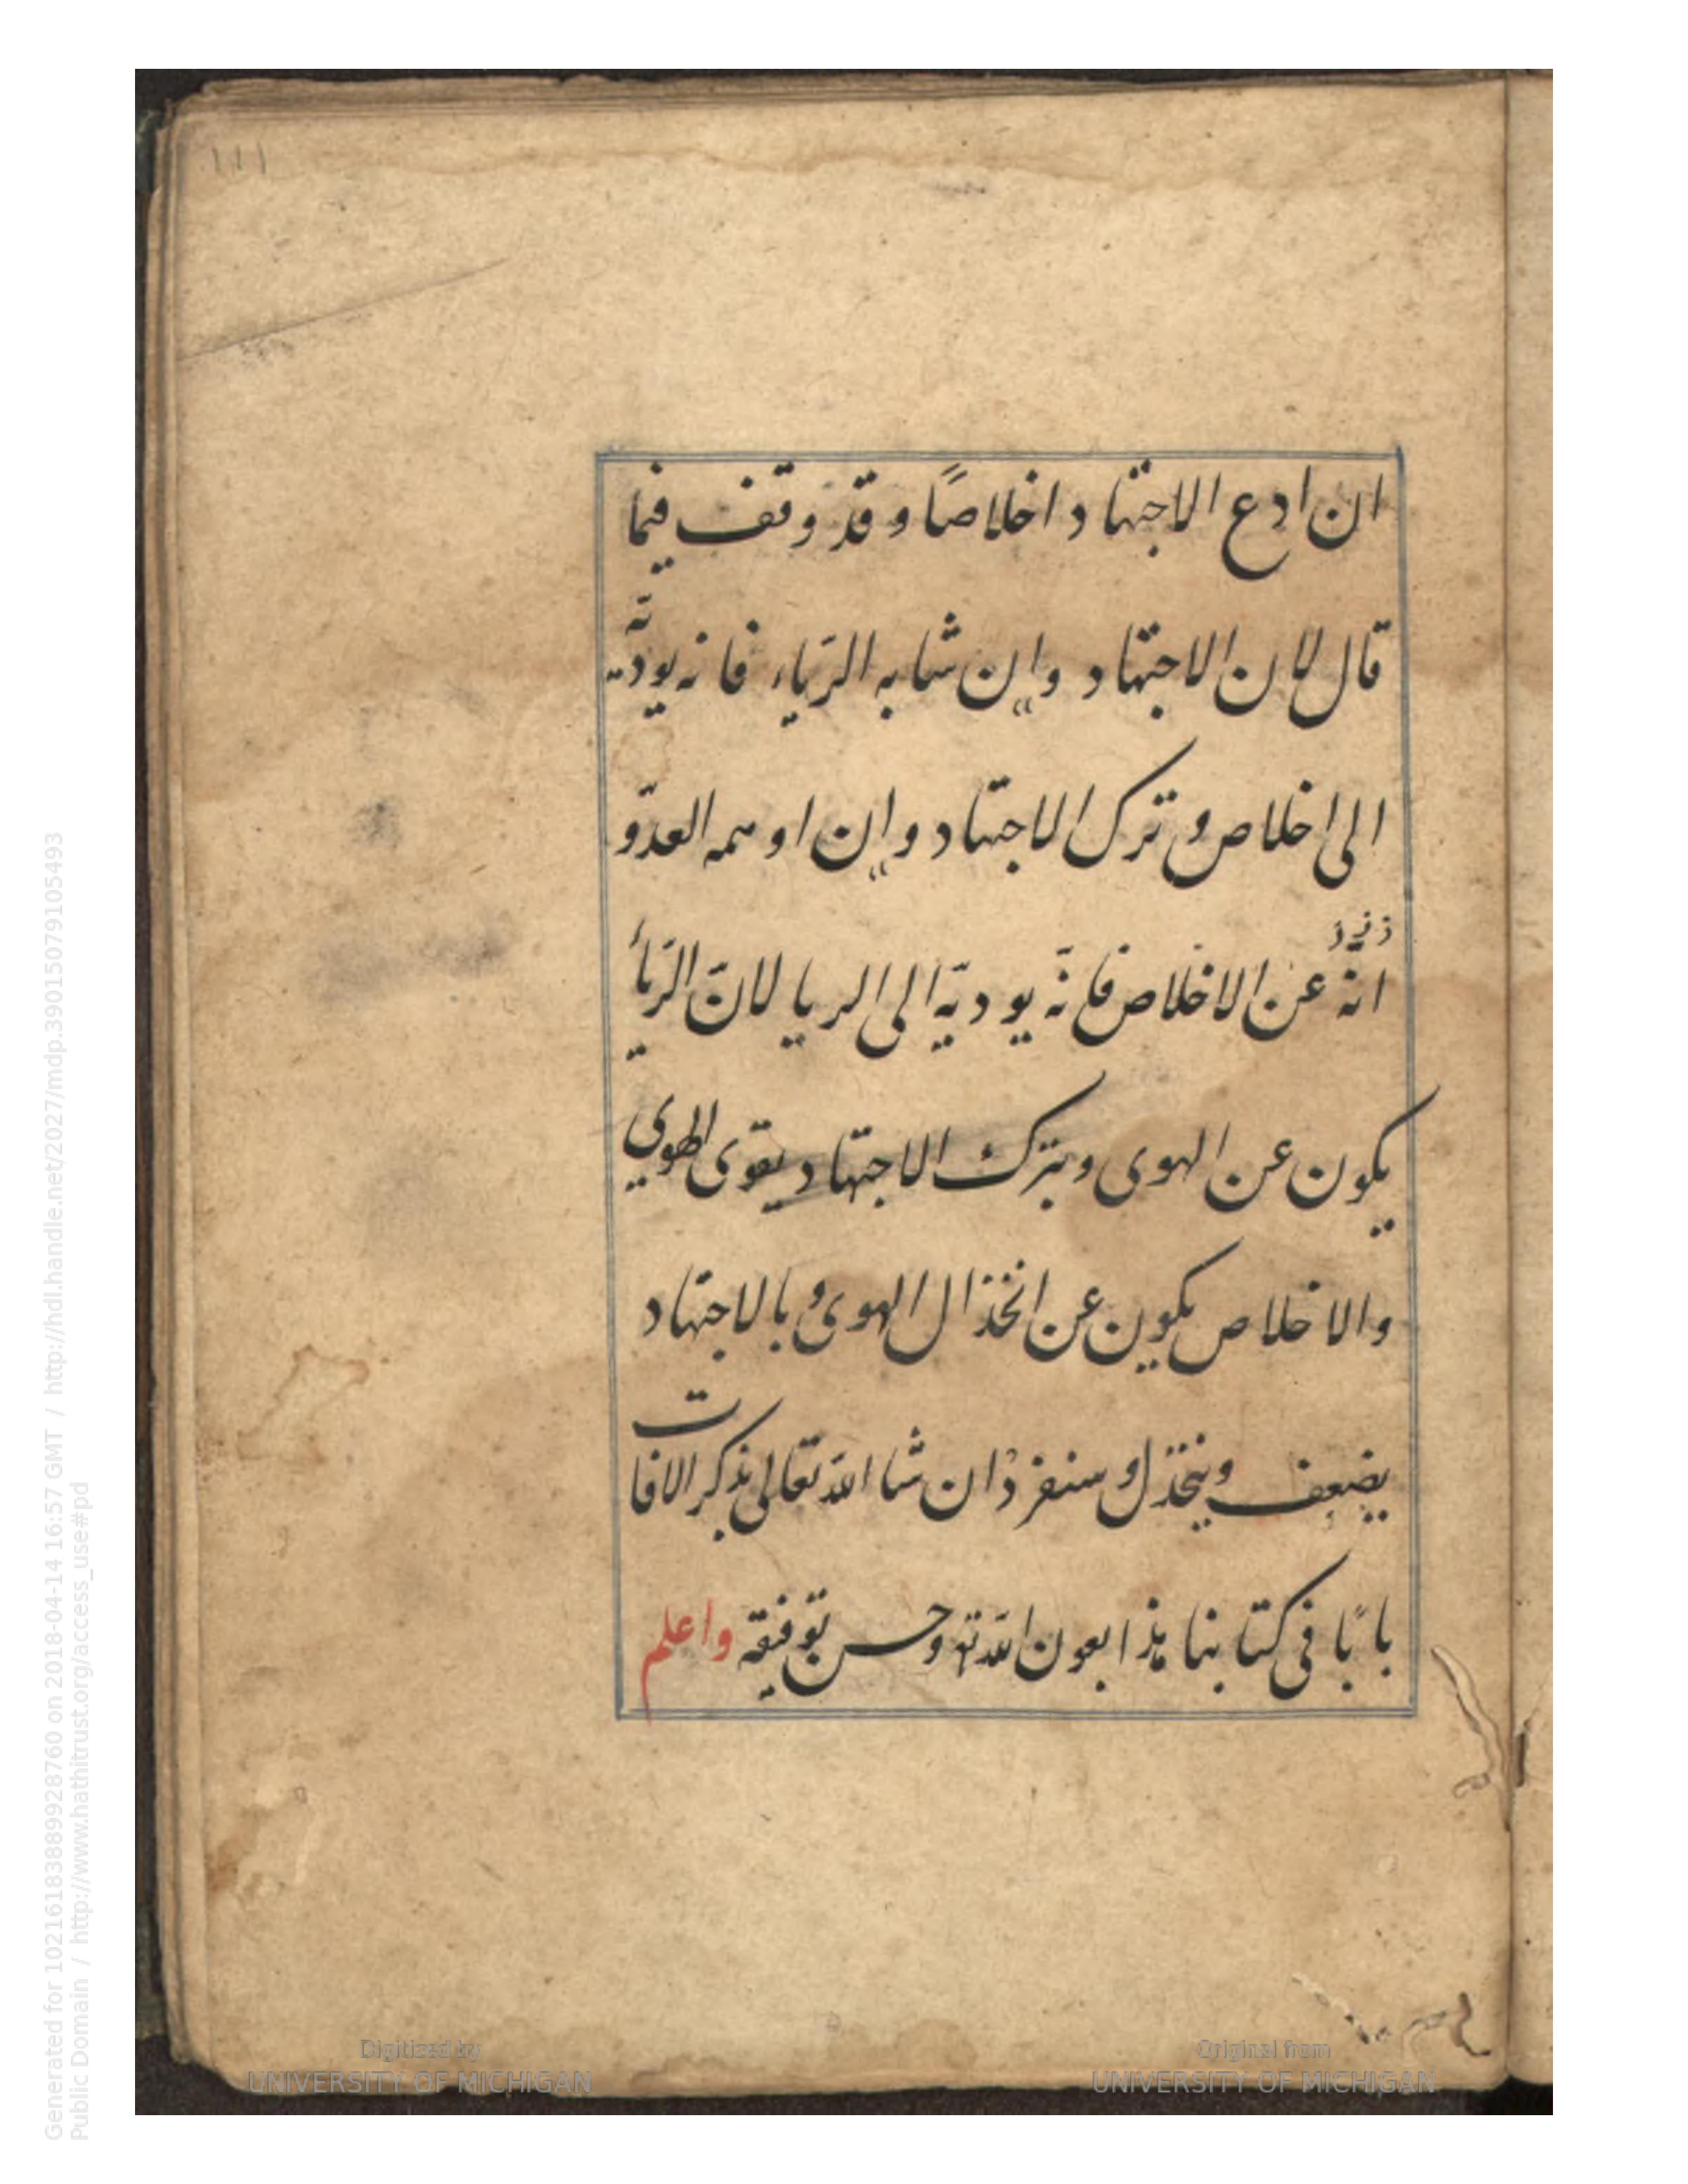 ١١١
ان ادع الاجتهاد اخلاصًا و قد وقف فيما
قال لان الاجتهاد وان شابه الرّياء فانه يوديه
الى اخلاص و ترك الاجتهاد وان اوهمه العدّو
انّه عن الاخلاص فانّه يوديّه الى الريا لانّ الرّيأ
يكون عن الهوى و بترك الاجتهاد يقوى الهوى
والاخلاص يكون عن انخذال الهوى و بالاجتهاد
يضعف وينخذل و سنفرد ان شا الله تعالى بذكر الافات
بابًا فى كتابنا هذا بعون الله تع وحسن توفيقه واعلم
Generated for 102161838899928760 on 2018-04-14 16:57 GMT / http://hdl.handle.net/2027/mdp.39015079105493
Public Domain / http://www.hathitrust.org/access_use#pd
Digitized by
UNIVERSITY OF MICHIGAN
Original from
UNIVERSITY OF MICHIGAN